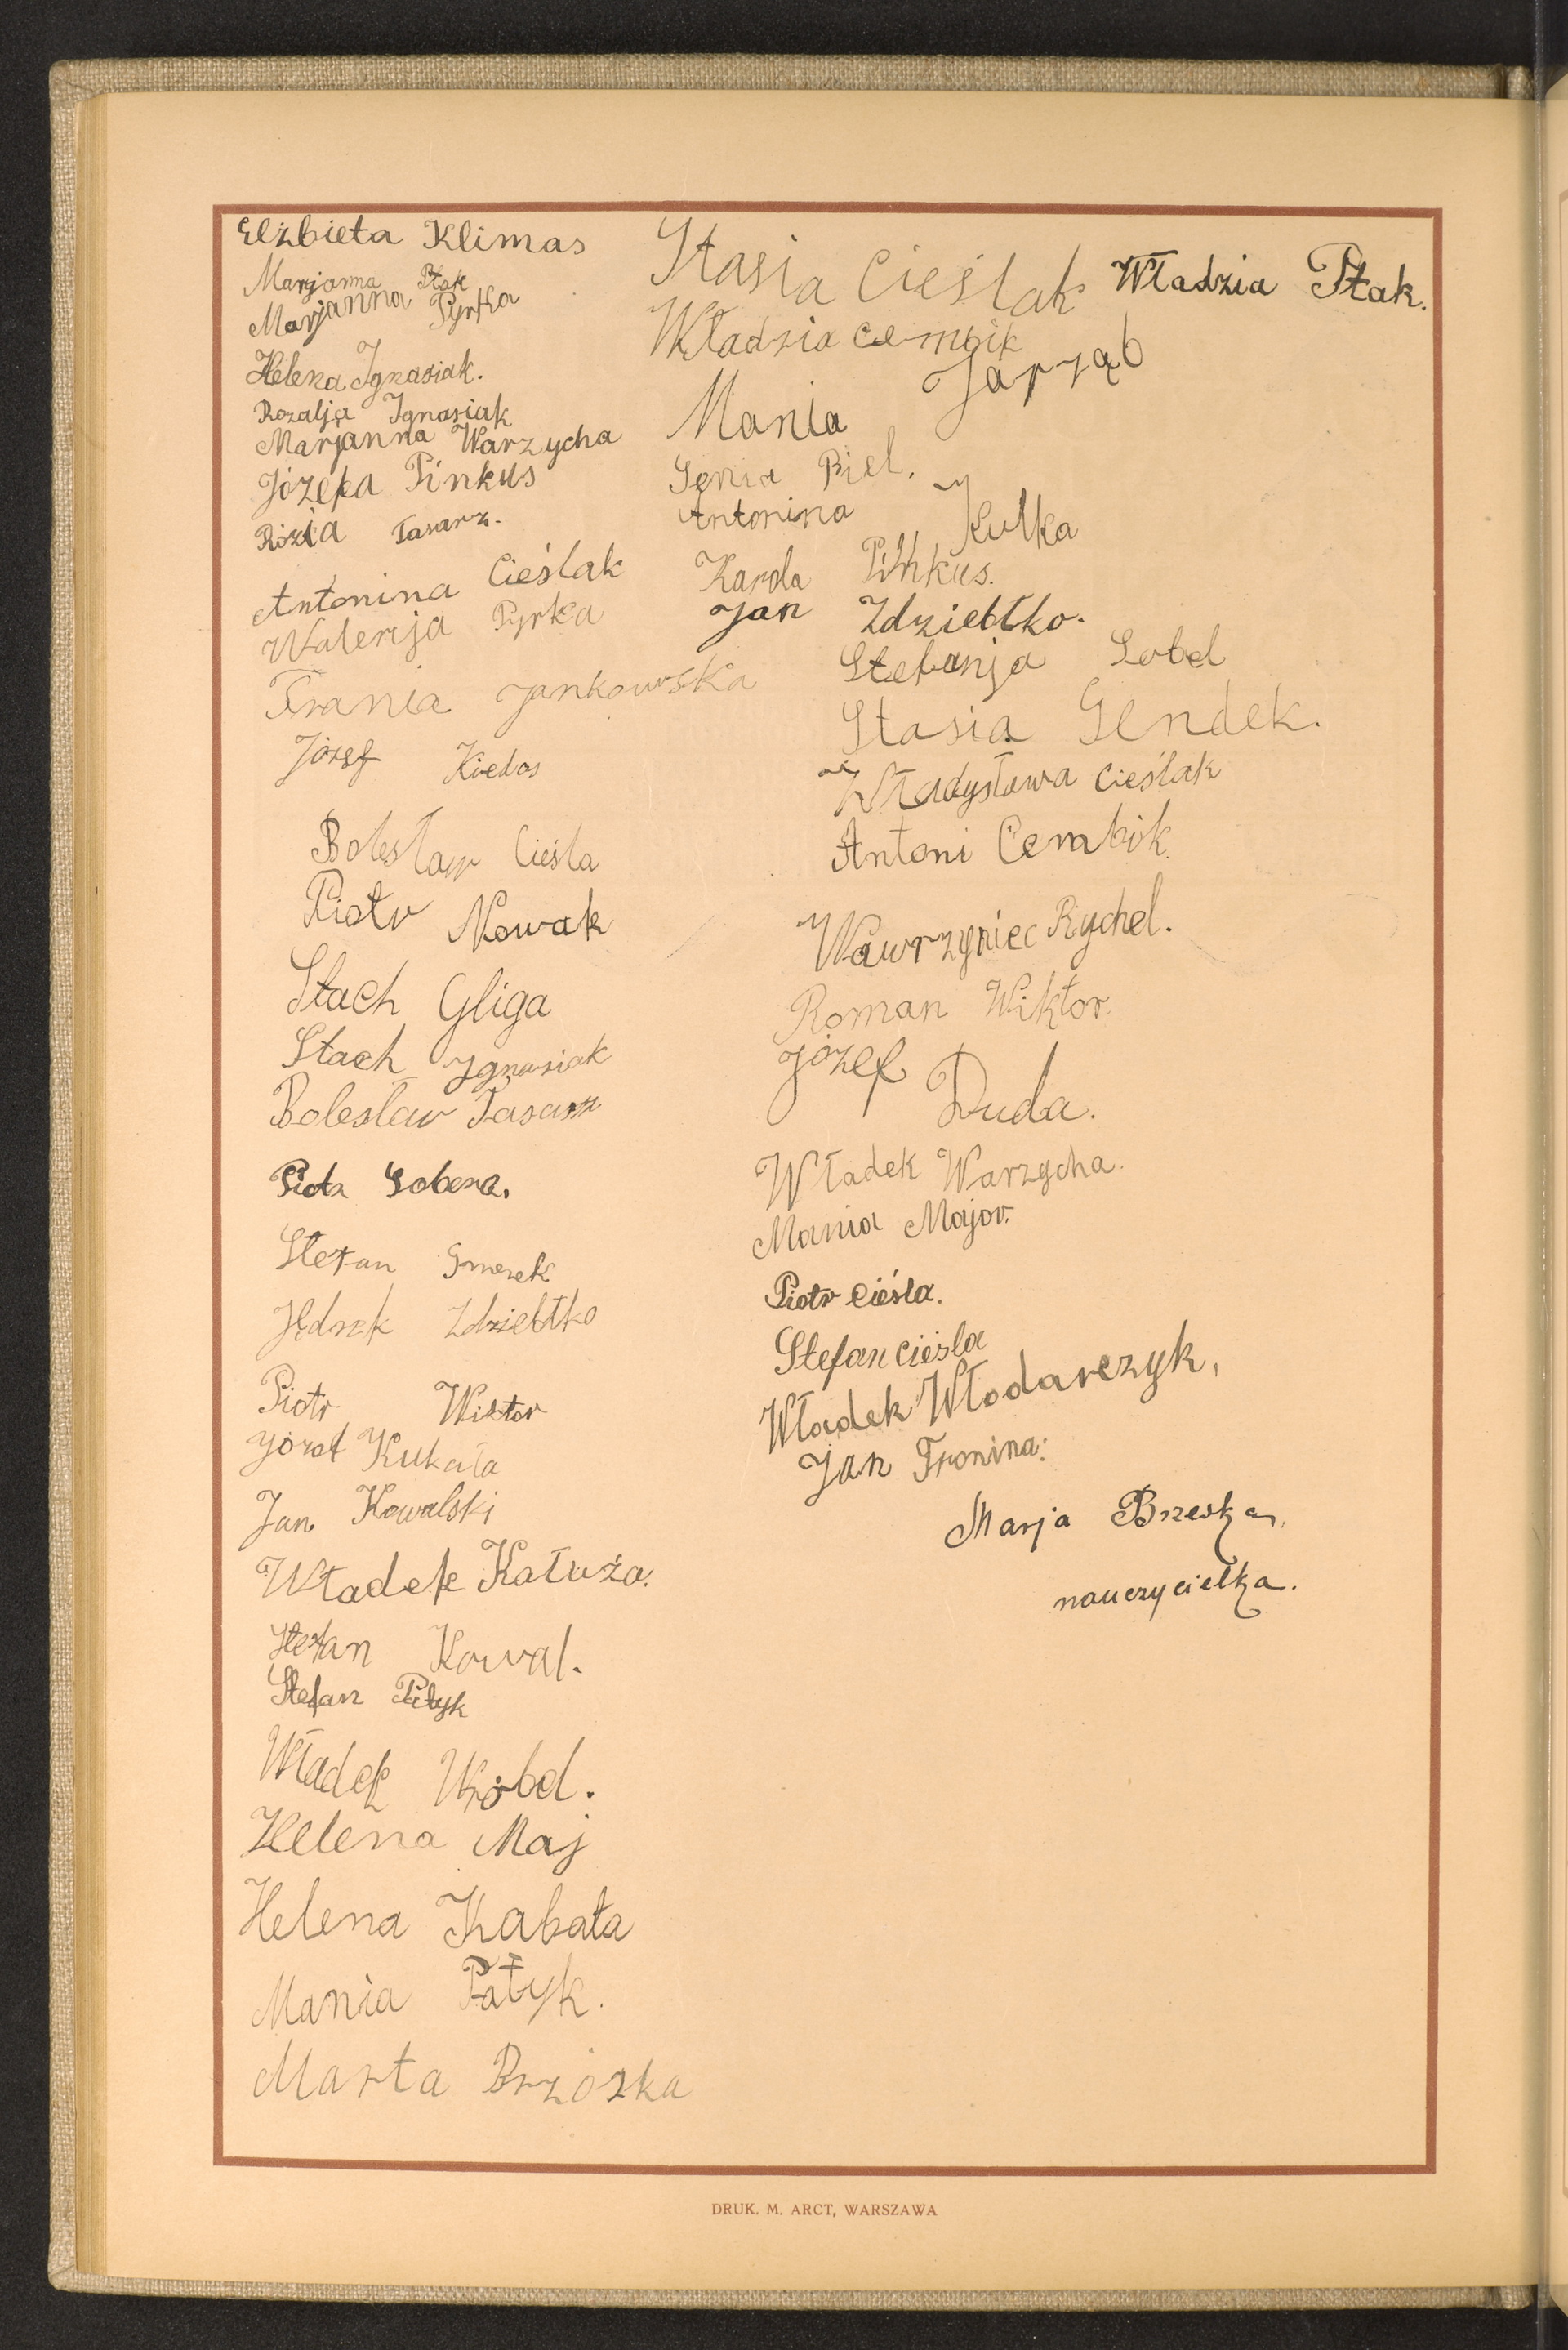 Elżbieta Klimas
Marjanna Ptak
Marjanna Pyrka
Helena Ignasiak.
Rozalja Ignasiak
Marjanna Warzycha
Józefa Pinkus
Rózia Tasarz.
Antonina Cieślak
Walerija Pyrka
Frania Jankowska
Józef Kiedos
Bolesław Cieśla
Piotr Nowak
Stach Gliga
Stach Ignasiak
Bolesław Tasarz
Piotr Sobera.
Stefan
Jędrek Zdziebłko
Piotr Wiktor
Józef Kukała
Jan Kowalski
Władek Kałuża.
Stefan Kowal.
Stefan
Władek Wróbel.
Helena Maj
Helena Kabała
Mania Patyk.
Marta Brzózka
Stasia Cieślak Władzia Ptak.
Władzia Cembik
Mania Jarząb
Genia Biel.
Antonina Kulka
Karola Pinkus.
Jan Zdziebłko.
Stefanja Sobel
Stasia Gendek.
Władysława Cieślak
Antoni Cembik
Wawrzyniec Rychel.
Roman Wiktor.
Józef Duda.
Władek Warzycha.
Mania Major.
Piotr Cieśla.
Stefan Cieśla
Władek Włodarczyk,
Jan Fronina.
Marja Brzeska,
nauczycielka.
DRUK. M. ARCT, WARSZAWA